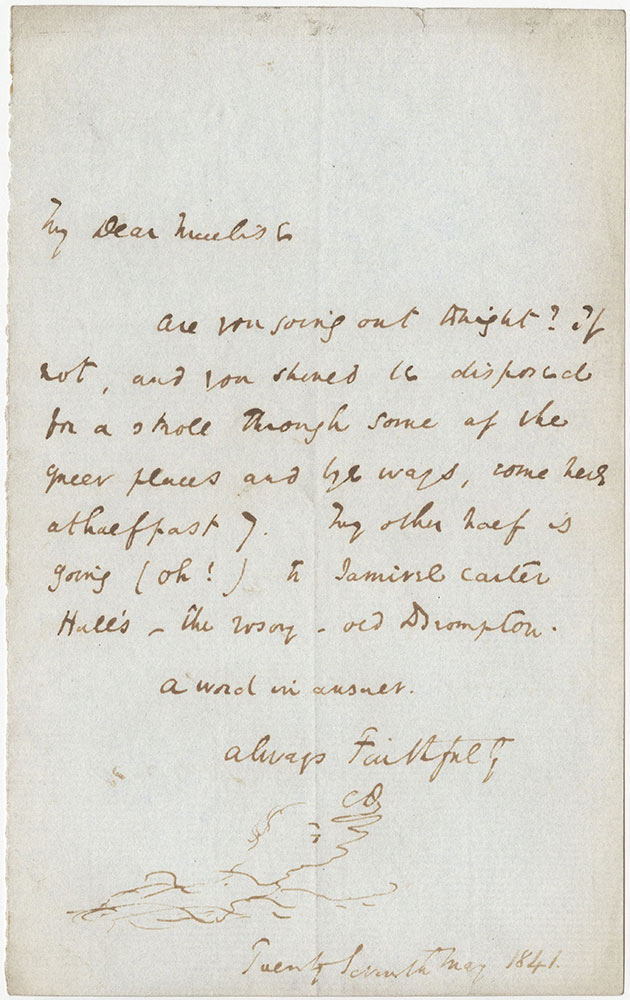 My Dear Maclise
Are you going out tonight? If
not, and you should be disposed
for a stroll through some of the
queer places and bye ways, come here
at half past 7. My other half is
going (oh!) to Samivel Carter
Hall's – the rosary – old Brompton.
A word in answer.
always Faithfully
CD
Twenty Seventh May 1841.